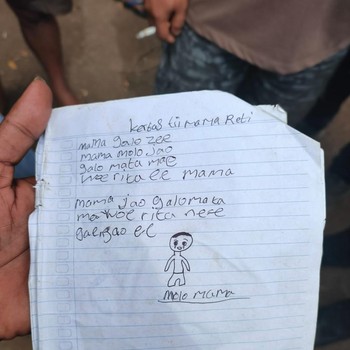 kertas tii mama Reti
mama galo zee
mama molo jao
galo mata mae
woe rita ee mama
mama jao galo mata
ma woe rita nefe
gae gao ee
molo mama